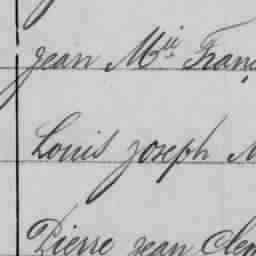 Jean Mie Franç
Louis Joseph M
Pierre Jean Clem